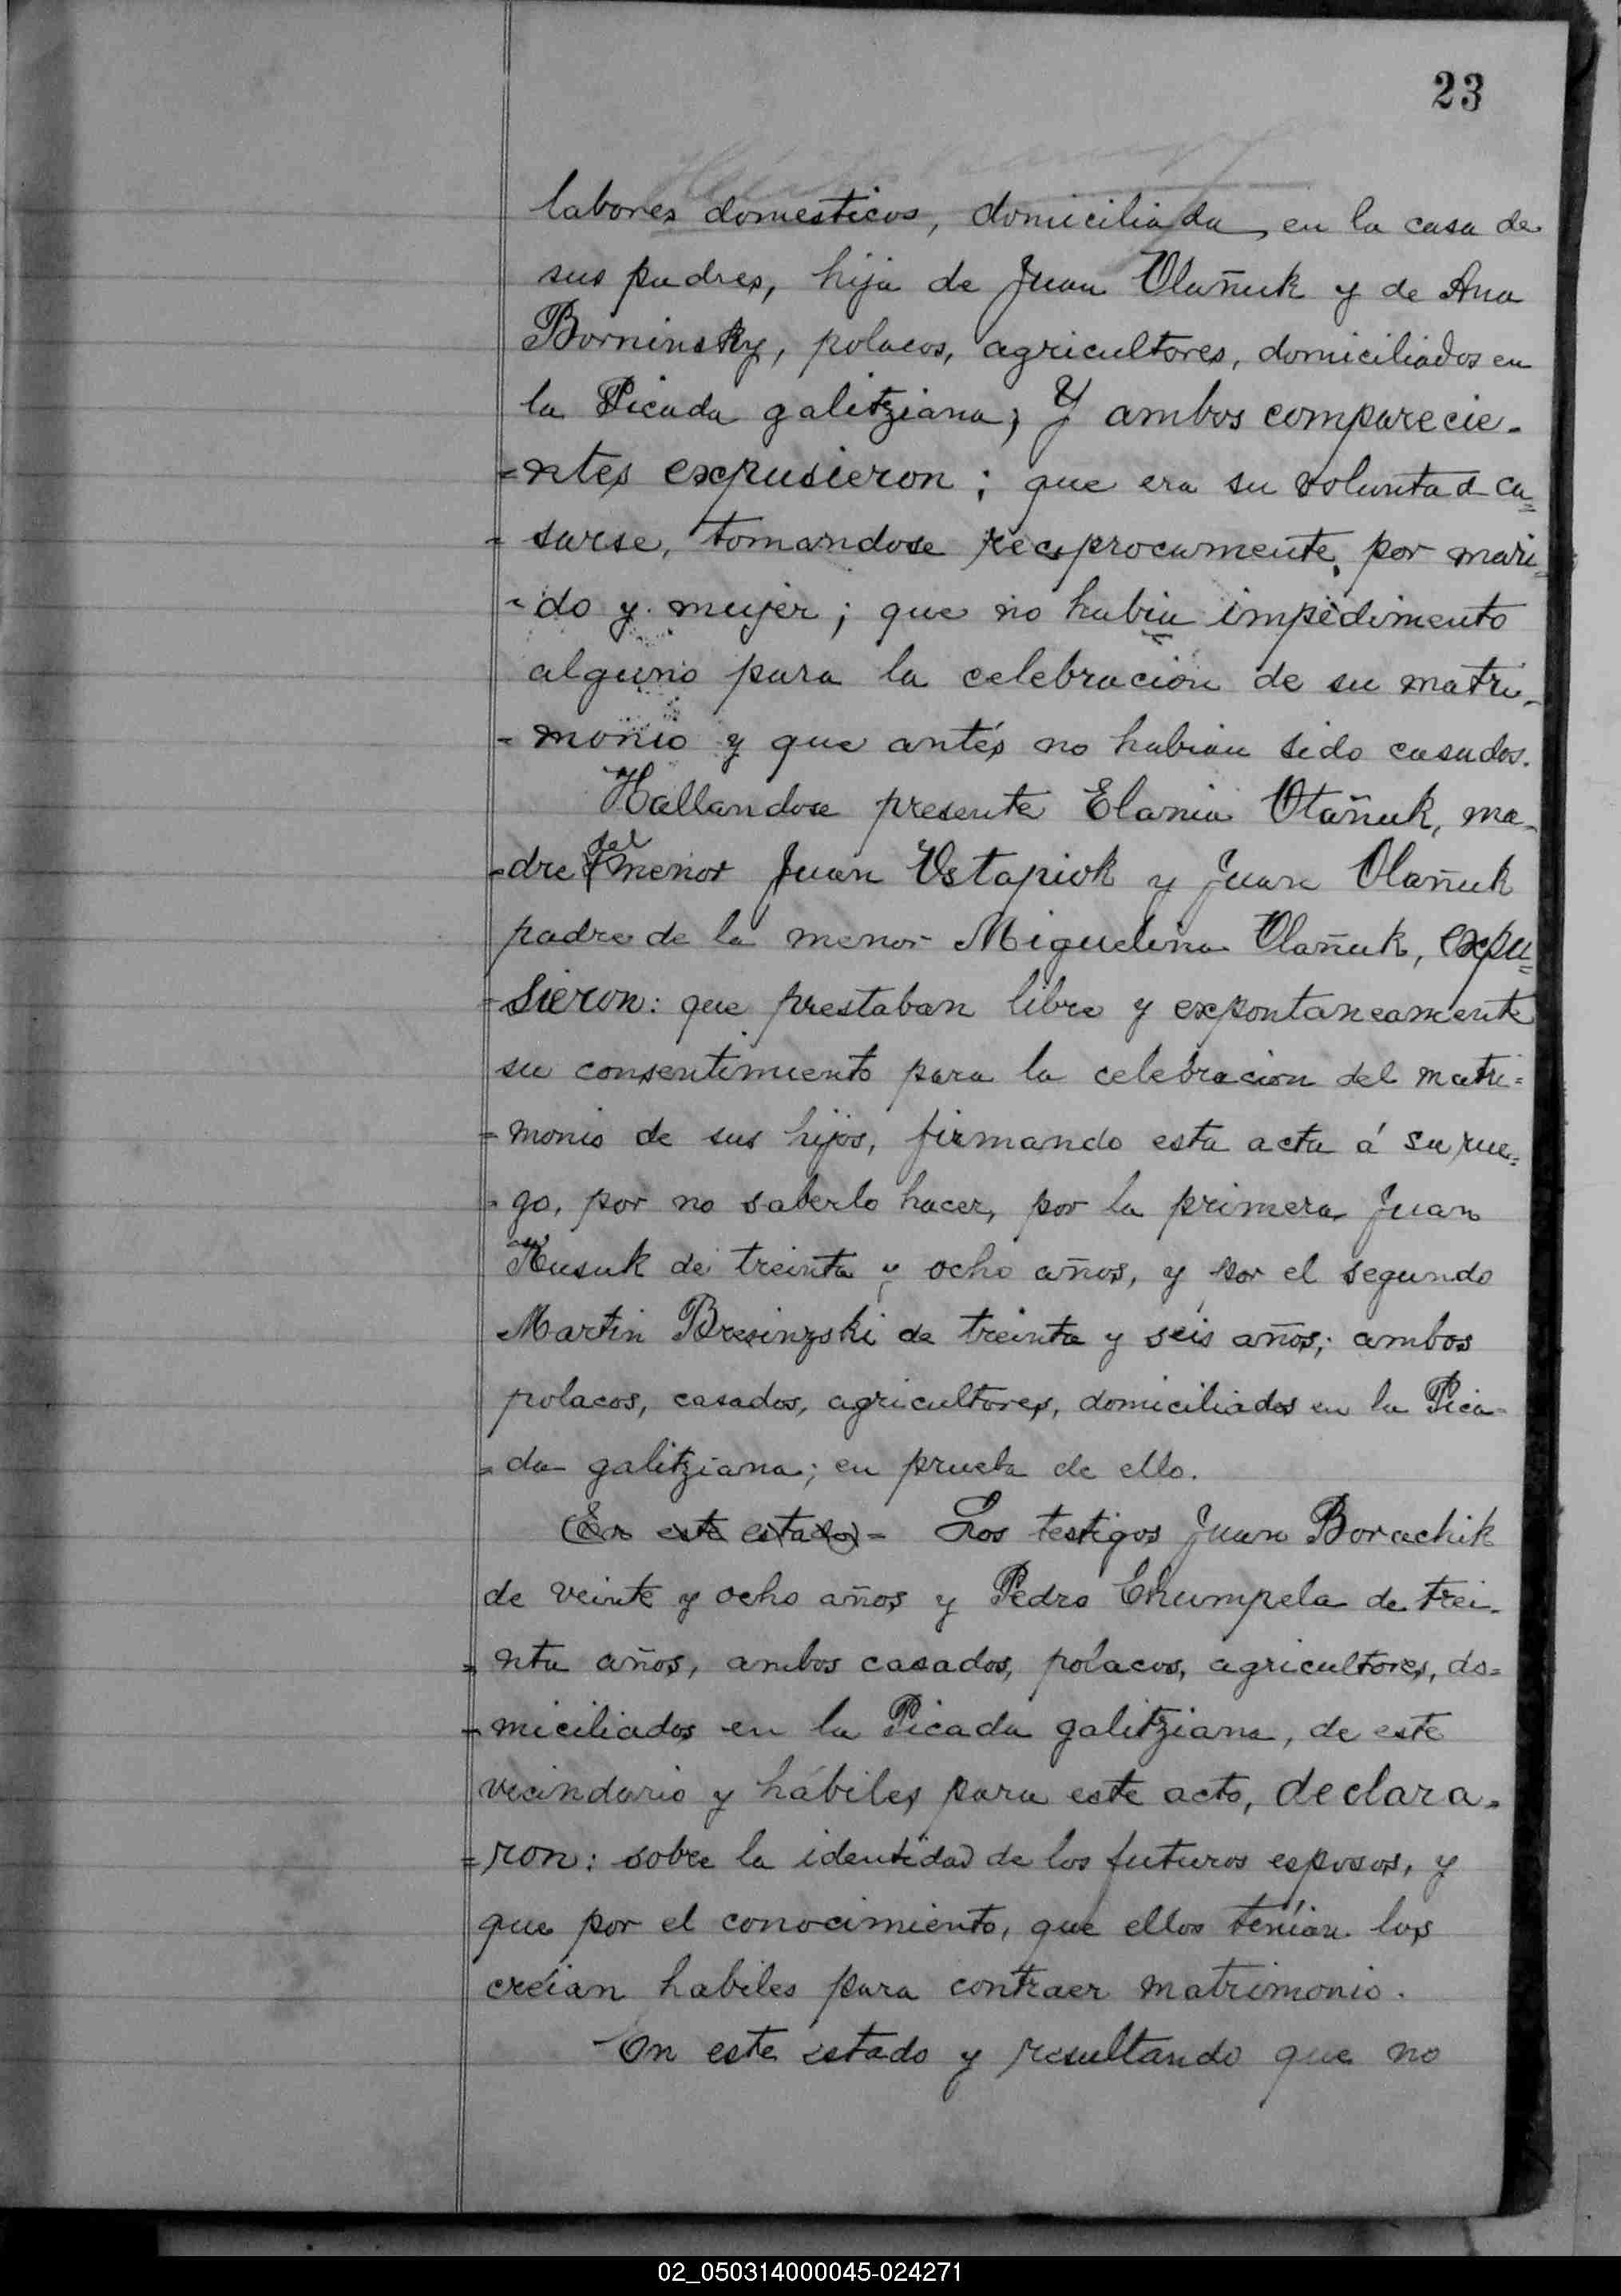 23
labores domesticos, domiciliada en la casa de
sus padres, hija de Juan Olañuk y de Ana
Borninsky, polacos, agricultores, domiciliados en
la Picada galitziana; Y ambos comparecie-
=ntes expusieron; que era su voluntad ca=
- sarse, tomandose reciprocamente, por mari=
- do y mujer; que no habia impedimento
alguno para la celebración de su matri-
- monio y que antes no habian sido casados.
Hallandose presente Elania Otañuk, ma-
-dre del menor Juan Ostapiok y Juan Olañuk
padre de la menor Miguelina Olañuk, expu=
-sieron: que prestaban libre y expontaneamente
su consentimiento para la celebracion del matri=
= monio de sus hijos, firmando esta acta á su rue=
- go, por no saberlo hacer, por la primera Juan
Kusuk de treinta y ocho años, y por el segundo
Martin Bresinzski de treinta y seis años; ambos
polacos, casados, agricultores, domiciliados en la Pica-
- da galitziana; en prueba de ello.
(En este estado) = Los testigos Juan Borachik
de veinte y ocho años y Pedro Chumpela de trei-
= nta años, ambos casados, polacos, agricultores, do=
- miciliados en la Picada galitziana, de este
vecindario y hábiles para este acto, declara-
=ron: sobre la identidad de los futuros esposos, y
que por el conocimiento, que ellos tenían los
creían habiles para contraer matrimonio.
En este estado y resultando que no
02_050314000045-024271